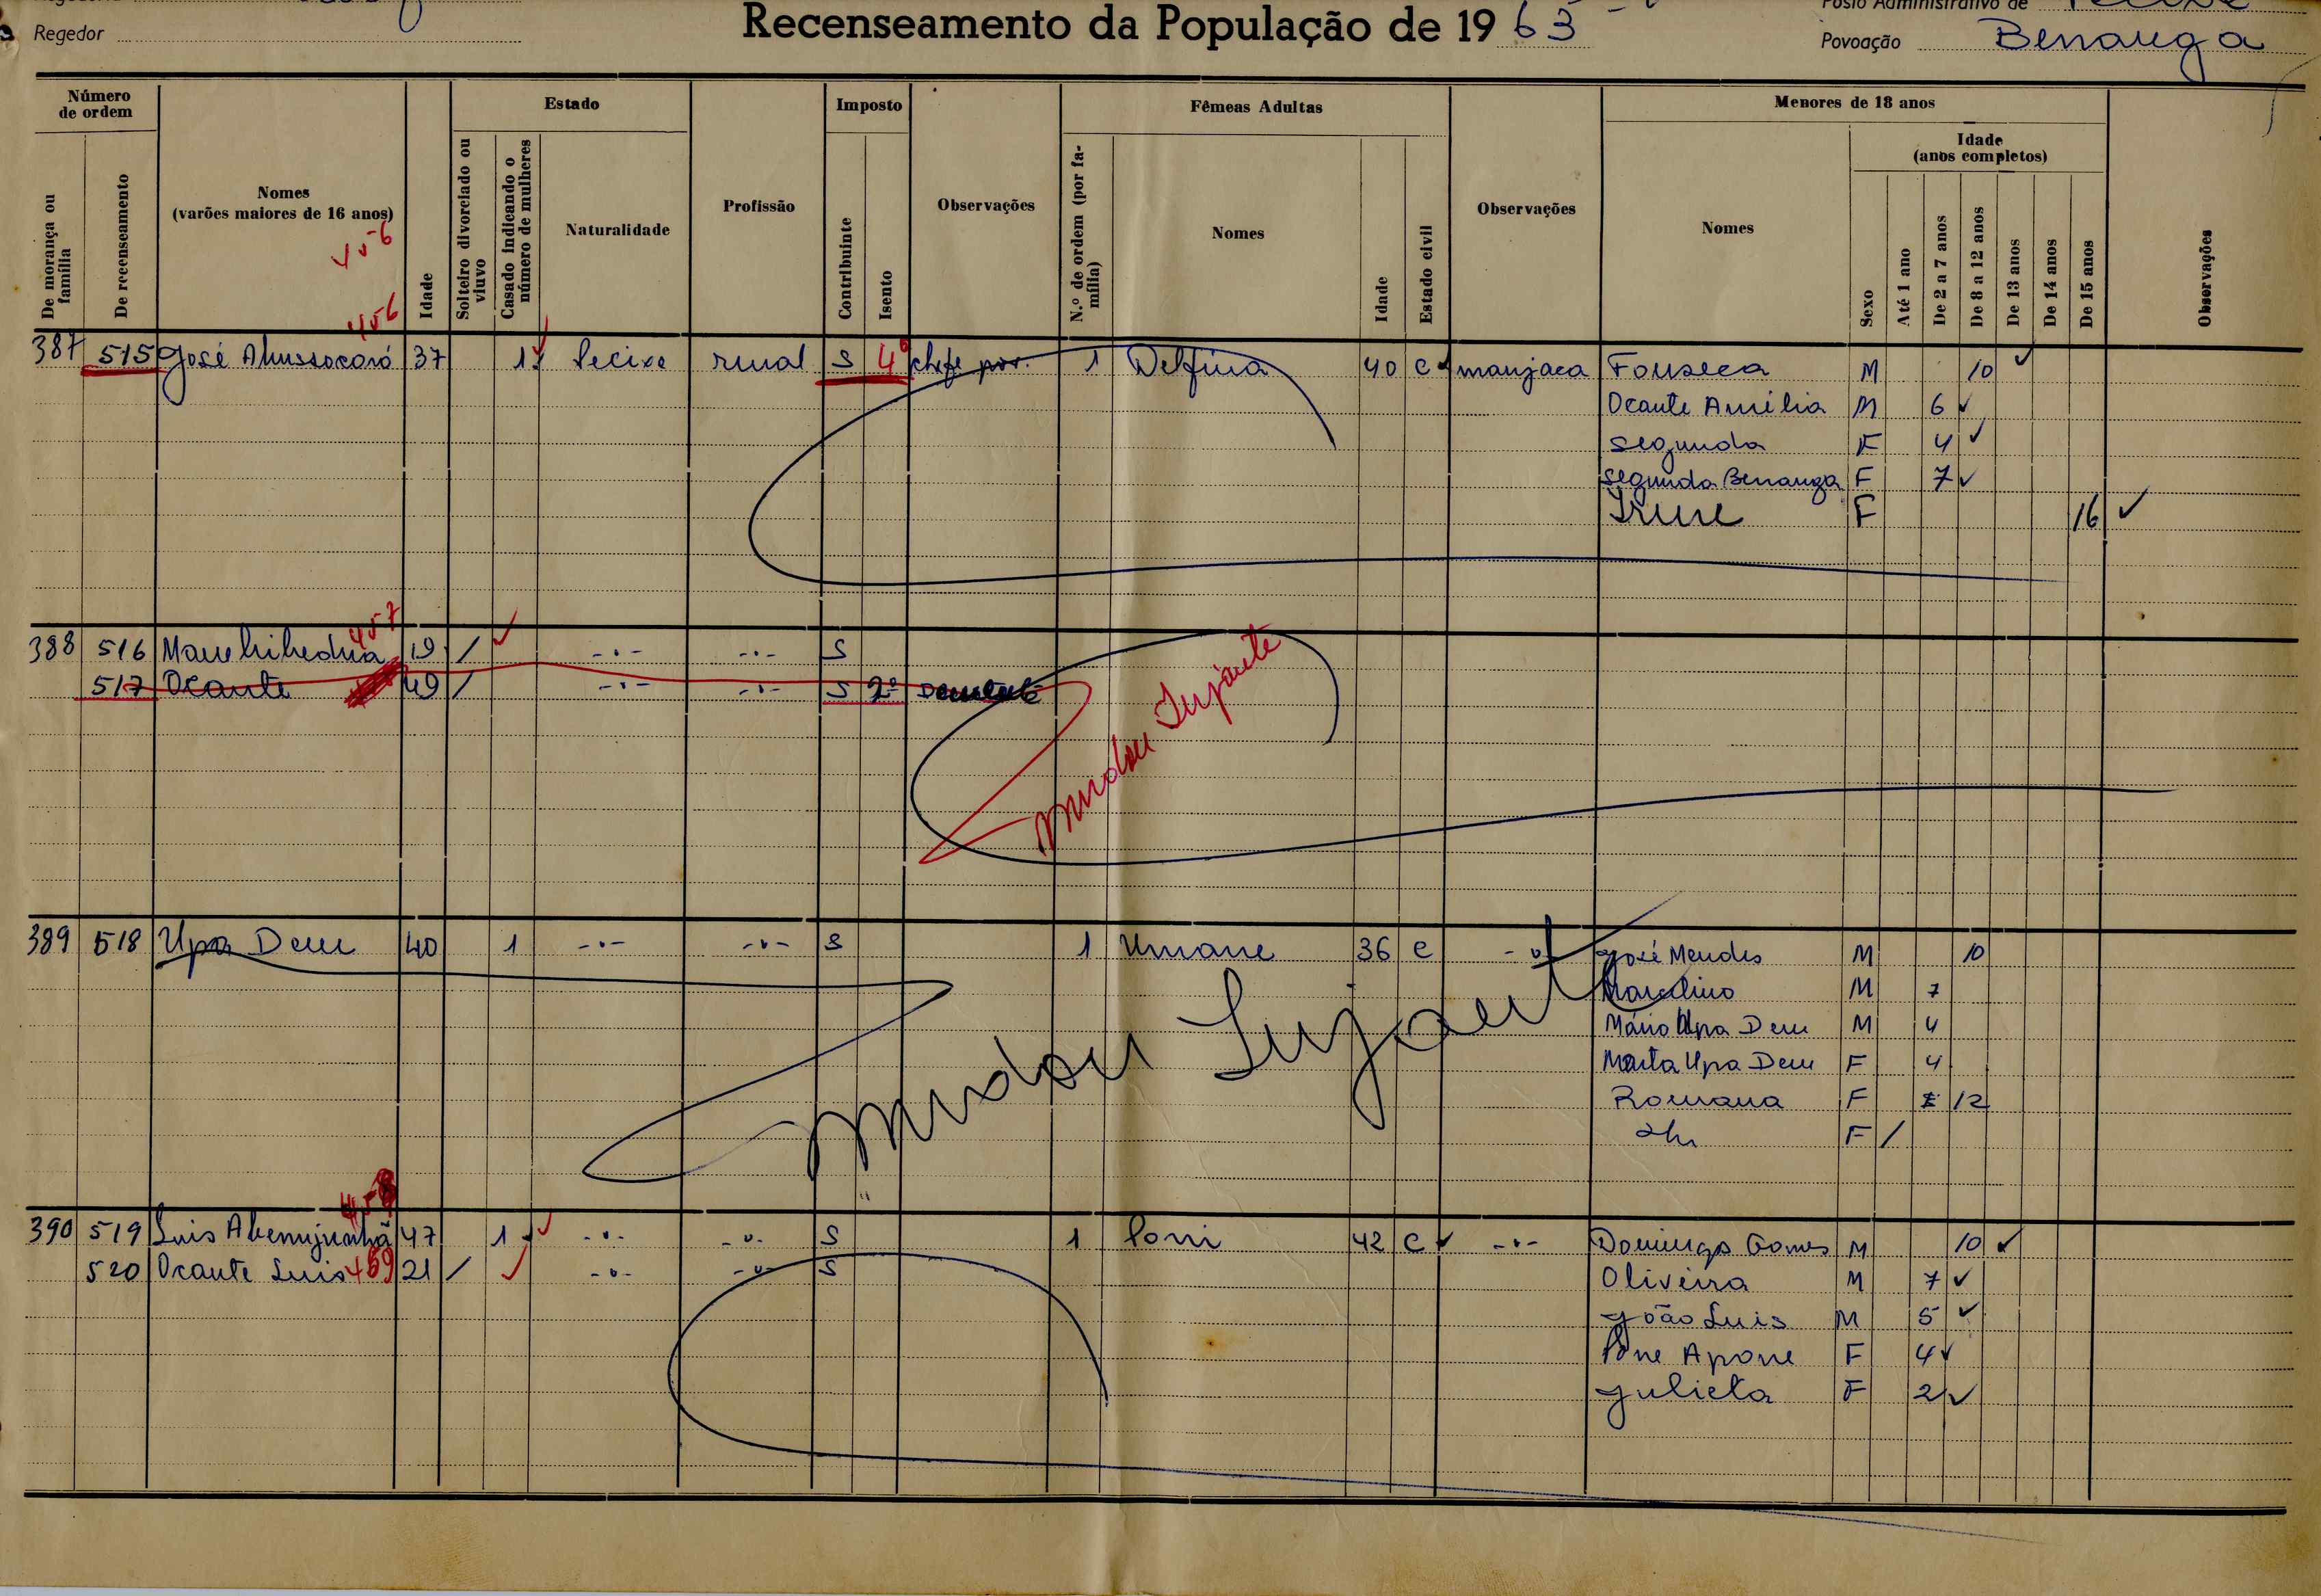 Regedor
Recenseamento da População de 19 63
Posto Administrativo de Pecixe
Povoação Benanga
Número de ordem
De morança ou família
De recenseamento
Nomes (varões maiores de 16 anos)
Idade
Estado
Solteiro divorciado ou viuvo
Casado indicando o número de mulheres
Naturalidade
Profissão
Imposto
Contribuinte
Isento
Observações
Fêmeas Adultas
N.º de ordem (por família)
Nomes
Idade
Estado civil
Observações
Menores de 18 anos
Nomes
Sexo
Idade (anos completos)
Até 1 ano
De 2 a 7 anos
De 8 a 12 anos
De 13 anos
De 14 anos
De 15 anos
Observações
456
456
387 515 José 37 1 Pecixe rural S 4º chefe pov. 1 Delfina 40 C manjaca Fonseca M 10
Ocante Amélia M 6
Segunda F 4
Segunda Benanga F 7
Irene F 16
457
388 516 19 / -·- -·- S
517 Ocante 49 / -·- -·- S 2º
Mudou Sujante
389 518 Upa Dem 40 1 -·- -·- S 1 Umane 36 C -·- José Mendes M 10
Marcelino M 7
Mário Upa Dem M 4
Marta Upa Dem F 4
Romana F 12
F /
Mudou Sujante
458
390 519 Luis 47 1 -·- -·- S 1 Poni 42 C -·- Domingo Gomes M 10
520 Ocante Luis 459 21 / -·- -·- S Oliveira M 7
João Luis M 5
Apone F 4
Julieta F 2